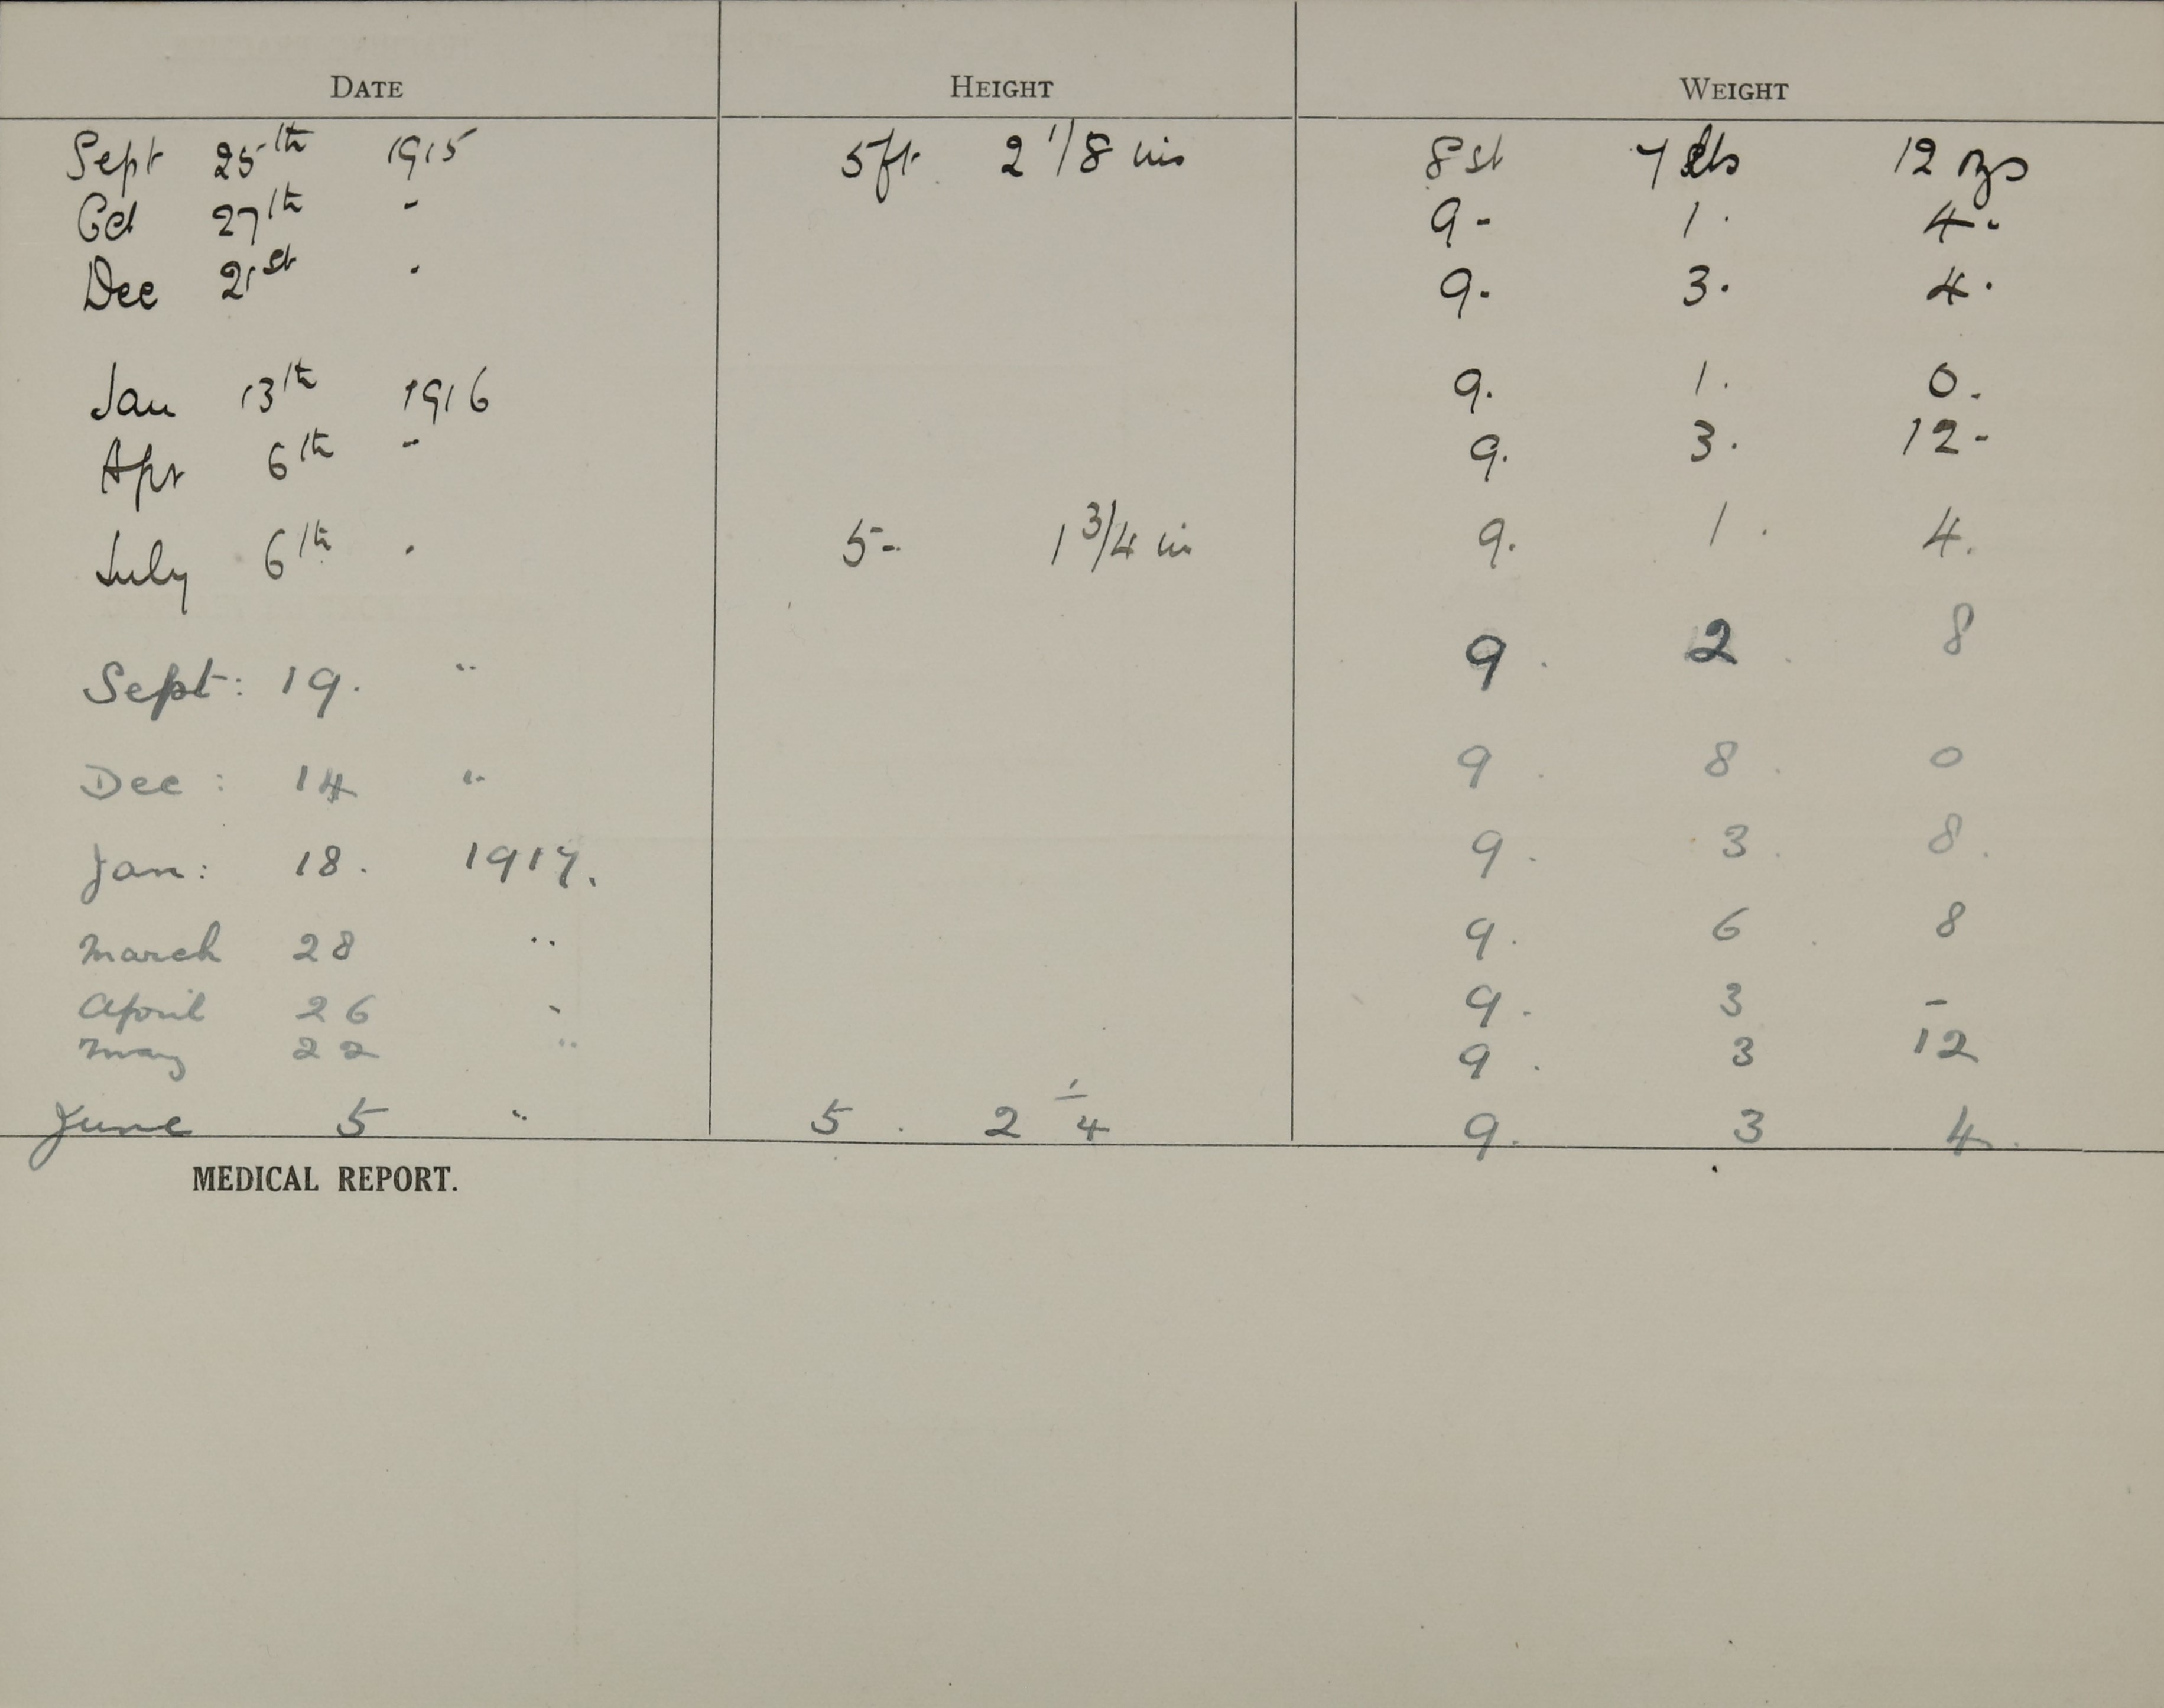 DATE HEIGHT WEIGHT
Sept 25th 1915 5ft 2 1/8 ins 8 st 7 lbs 12 ozs
Oct 27th - 9- 1. 4.-
Dec 21st . 9. 3. 4.
Jan 13th 1916 9. 1. 0.
Apr 6th - 9. 3. 12-
July 6th . 5- 1 3/4 in 9. 1. 4.
Sept: 19. " 9. 2. 8
Dec: 14 " 9. 8. 0
Jan: 18. 1917. 9. 3. 8.
March 28 " 9. 6. 8
April 26 " 9. 3 -
May 22 " 9. 3 12
June 5 " 5. 2 1/4 9. 3 4.
MEDICAL REPORT.